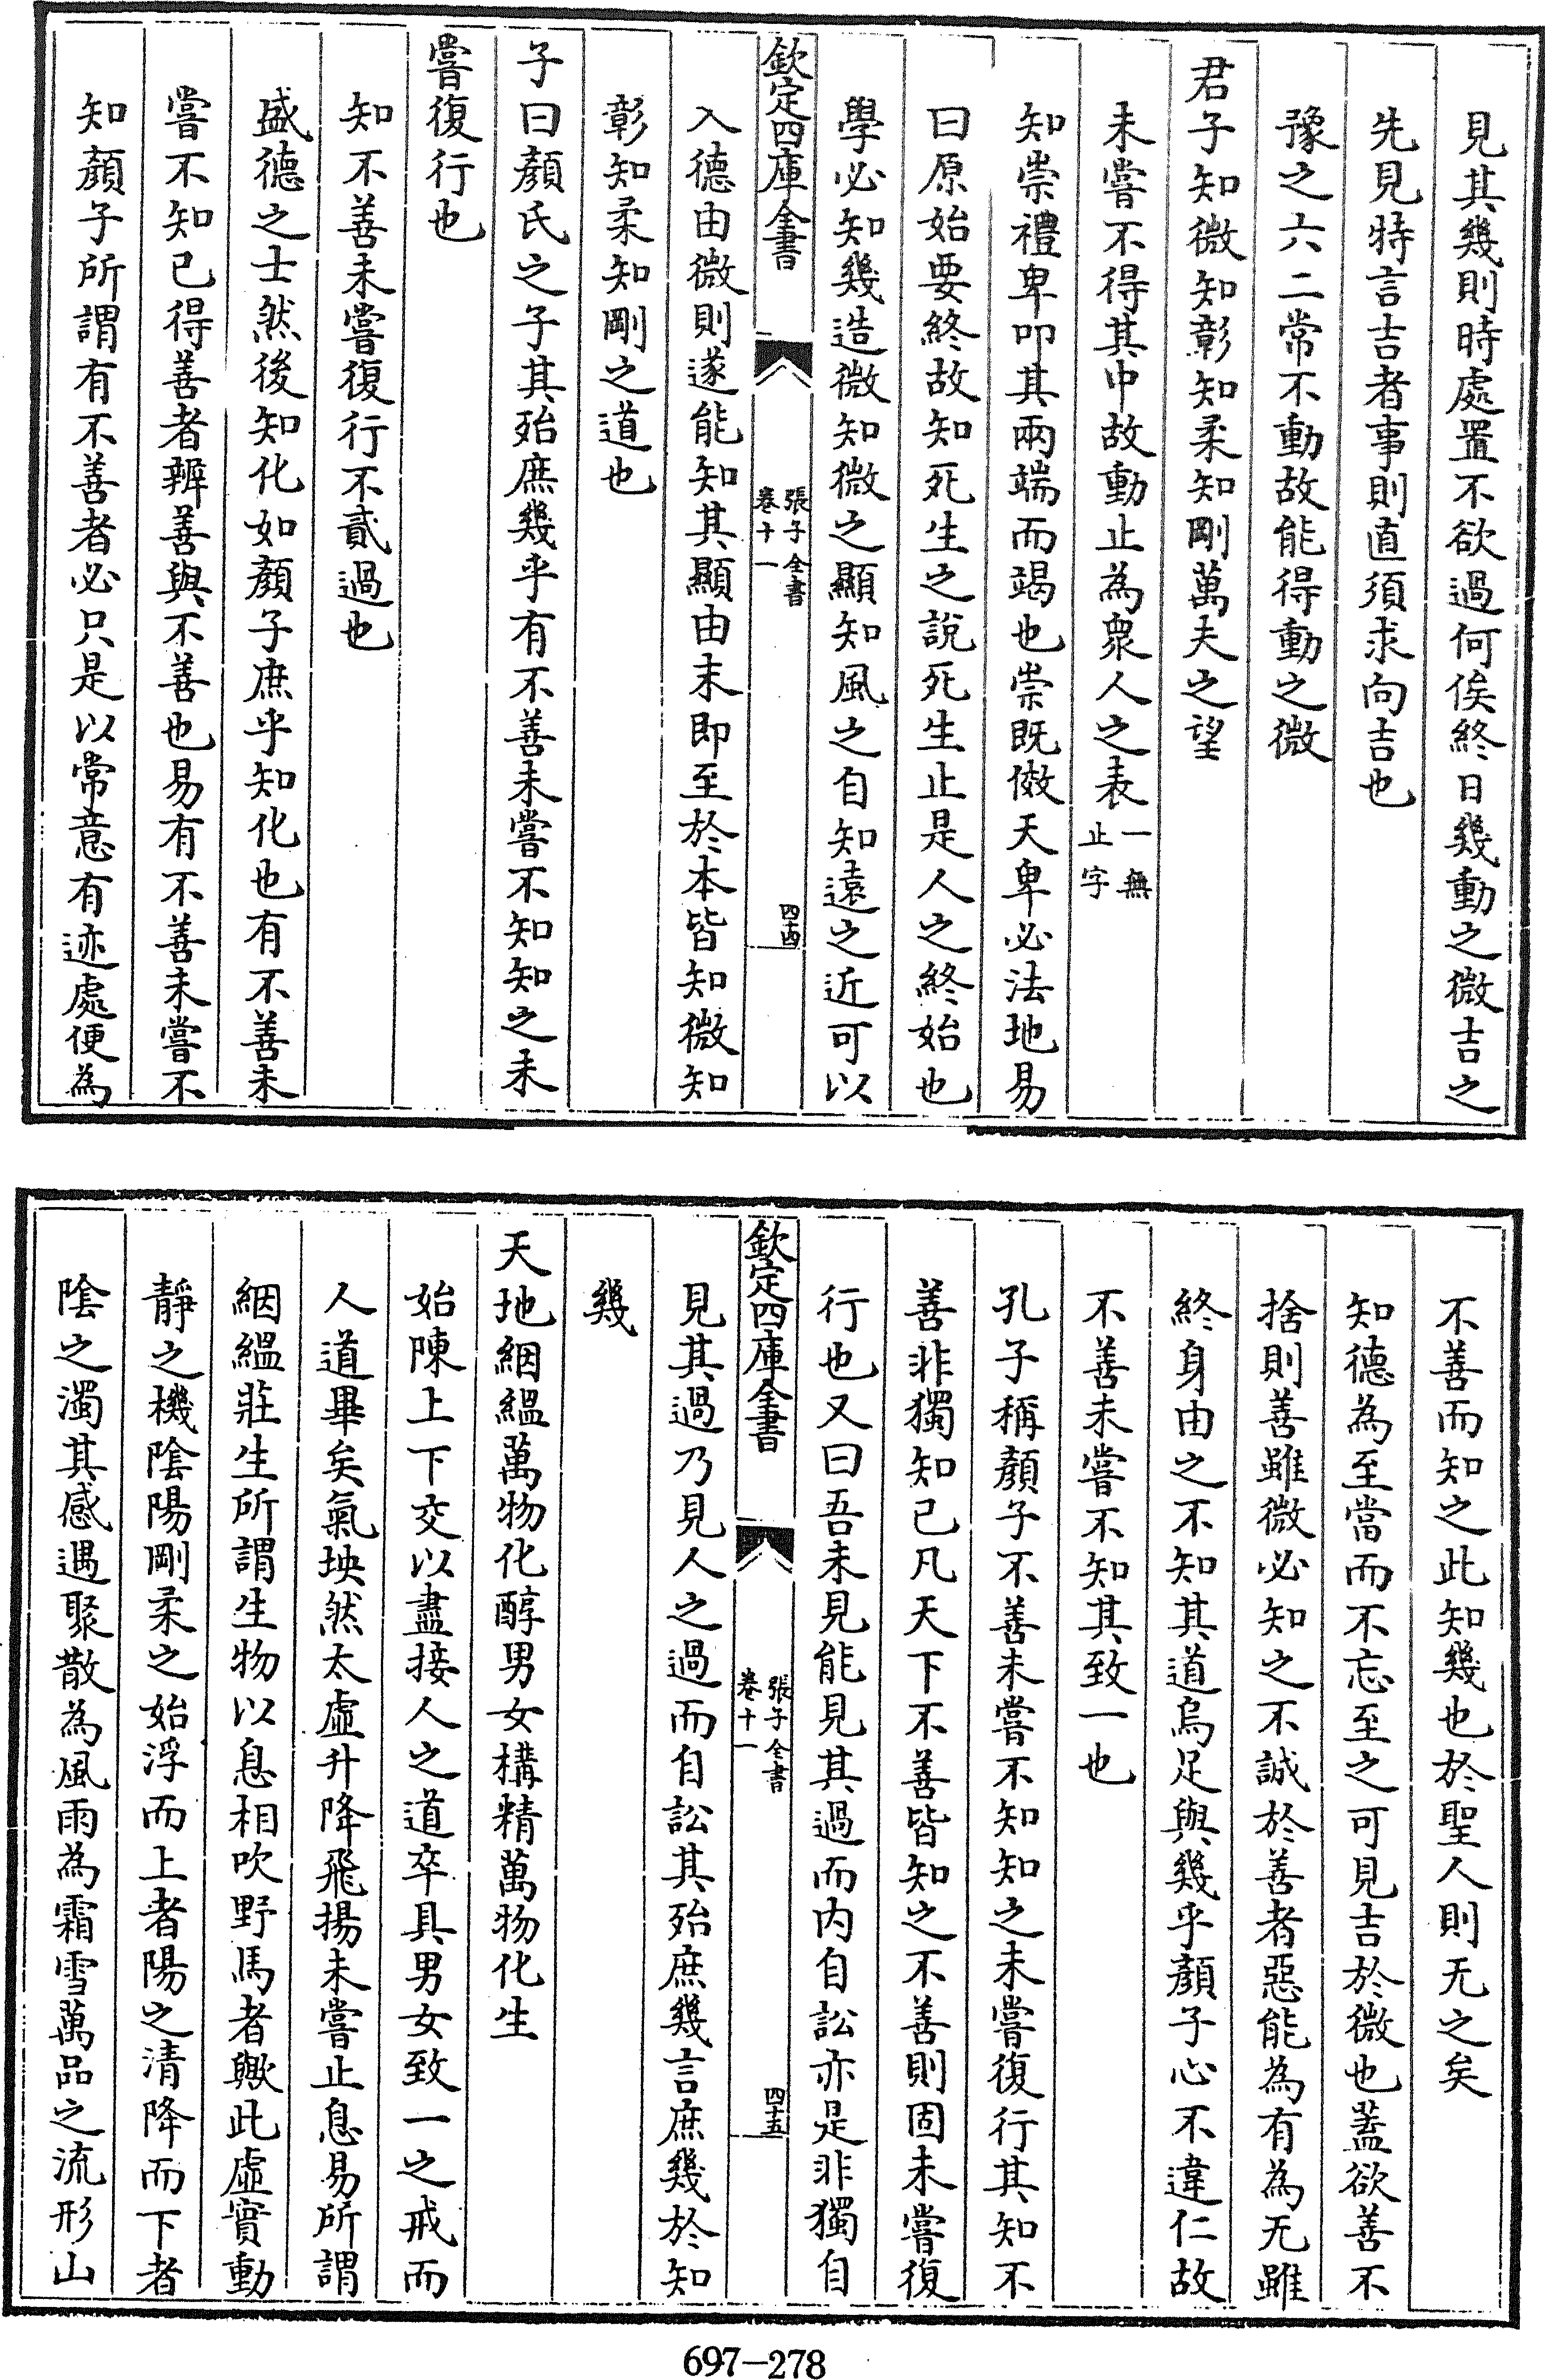 見其幾則時處置不欲過何俟終日幾動之微吉之
先見特言吉者事則直須求向吉也
豫之六二常不動故能得動之微
君子知微知彰知柔知剛萬夫之望
未嘗不得其中故動止為衆人之表一無止字
知崇禮卑叩其兩端而竭也崇既傚天卑必法地易
曰原始要終故知死生之說死生止是人之終始也
學必知幾造微知微之顯知風之自知遠之近可以
欽定四庫全書
張子全書
卷十一
四十四
入德由微則遂能知其顯由末即至於本皆知微知
彰知柔知剛之道也
子曰顏氏之子其殆庶幾乎有不善未嘗不知知之未
嘗復行也
知不善未嘗復行不貳過也
盛德之士然後知化如顏子庶乎知化也有不善未
嘗不知已得善者辨善與不善也易有不善未嘗不
知顏子所謂有不善者必只是以常意有迹處便為
不善而知之此知幾也於聖人則无之矣
知德為至當而不忘至之可見吉於微也蓋欲善不
捨則善雖微必知之不誠於善者惡能為有為无雖
終身由之不知其道烏足與幾乎顏子心不違仁故
不善未嘗不知其致一也
孔子稱顏子不善未嘗不知知之未嘗復行其知不
善非獨知己凡天下不善皆知之不善則固未嘗復
行也又曰吾未見能見其過而内自訟亦是非獨自
欽定四庫全書
張子全書
卷十一
四十五
見其過乃見人之過而自訟其殆庶幾言庶幾於知
幾
天地絪縕萬物化醇男女構精萬物化生
始陳上下交以盡接人之道卒具男女致一之戒而
人道畢矣氣坱然太虛升降飛揚未嘗止息易所謂
絪縕莊生所謂生物以息相吹野馬者歟此虛實動
靜之機陰陽剛柔之始浮而上者陽之清降而下者
陰之濁其感遇聚散為風雨為霜雪萬品之流形山
697-278